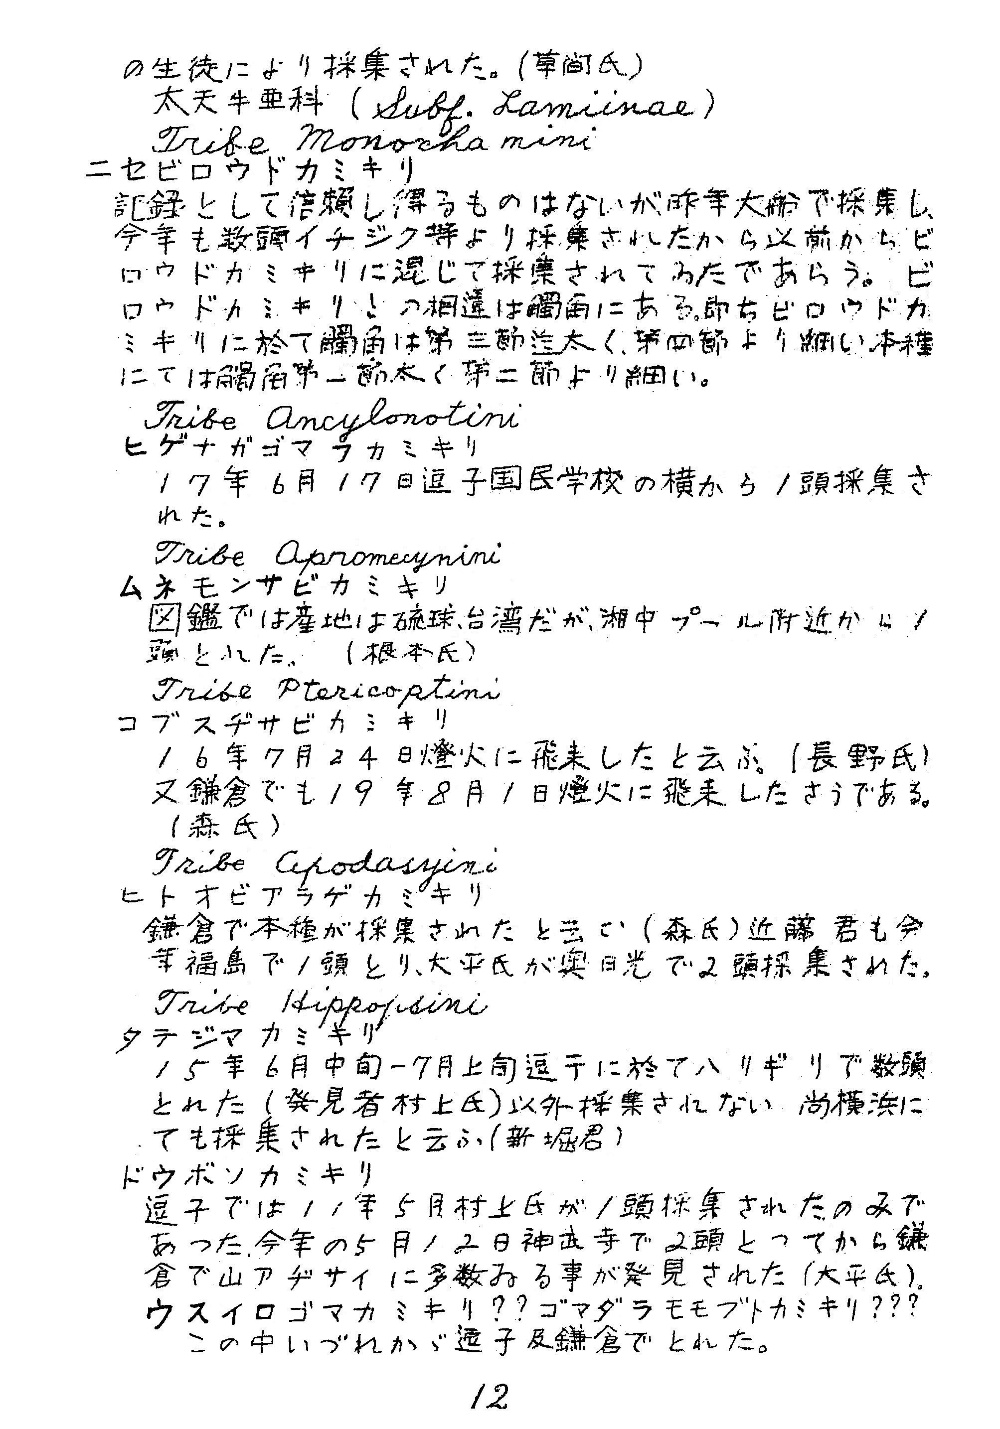 の生徒により採集された。(草間氏)
太天牛亜科 (Subf. Lamiinae)
Tribe Monochamini
ニセビロウドカミキリ
記録として信頼し得るものはないが、昨年大船で採集し、
今年も数頭イチジク等より採集されたから以前からビ
ロウドカミキリに混じて採集されてゐたであらう。ビ
ロウドカミキリとの相違は觸角にある。即ちビロウドカ
ミキリに於て觸角は第三節迄太く、第四節より細い。本種
にては觸角第一節太く第二節より細い。
Tribe Ancylonotini
ヒゲナガゴマフカミキリ
17年6月17日逗子国民学校の横から1頭採集さ
れた。
Tribe Apromecynini
ムネモンサビカミキリ
図鑑では産地は硫球、台湾だが、湘中プール附近から1
頭とれた。 (根本氏)
Tribe Ptericoptini
コブスヂサビカミキリ
16年7月24日燈火に飛来したと云ふ。(長野氏)
又鎌倉でも19年8月1日燈火に飛来したさうである。
(森氏)
Tribe Apodasyini
ヒトオビアラゲカミキリ
鎌倉で本種が採集されたと云ひ(森氏)近藤君も今
年福島で1頭とり、大平氏が奥日光で2頭採集された。
Tribe Hippopsini
タテジマカミキリ
15年6月中旬-7月上旬逗子に於てハリギリで数頭
とれた(発見者村上氏)以外採集されない 尚横浜に
ても採集されたと云ふ(新堀君)
ドウボソカミキリ
逗子では11年5月村上氏が1頭採集されたのみで
あつた、今年の5月12日神武寺で2頭とつてから鎌
倉で山アヂサイに多数ゐる事が発見された(大平氏)。
ウスイロゴマカミキリ??ゴマダラモモブトカミキリ???
この中いづれかゞ逗子及鎌倉でとれた。
12